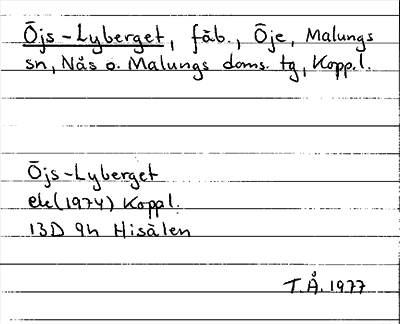 Öjs-Lyberget, fäb., Öje, Malungs
sn, Nås o. Malungs doms. tg, Kopp.l.
Öjs-Lyberget
ek(1974) Koppl.
13D 9h Hisälen
T.Å. 1977